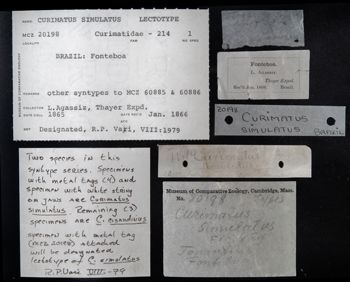 NAME CURIMATUS SIMULATUS LECTOTYPE
MCZ 20198 Curimatidae - 214 1
LOCALITY FAM NO SPEC
BRAZIL: Fonteboa
REMARKS other syntypes to MCZ 60885 & 60886
COLLECTOR L.Agassiz, Thayer Expd.
DATE COLL 1865 DATE REC'D Jan. 1866
DET Designated, R.P. Vari, VIII:1979
Fonteboa.
L. Agassiz
Thayer Expd.
Rec'd Jan. 1866. Brazil.
20198
CURIMATUS
SIMULATUS BRAZIL
Two species in this
syntype series. Specimens
with metal tag (4) and
specimen with white string
on jaws are Curimatus
simulatus. Remaining (3)
specimens are C. cisandinus
specimen with metal tag
(MCZ 20198) attached
will be designated
lectotype of C. simulatus
R.P. Vari VIII-79
Curimatus
Museum of Comparative Zoology, Cambridge, Mass.
No. 20198
Curimatus
simulatus